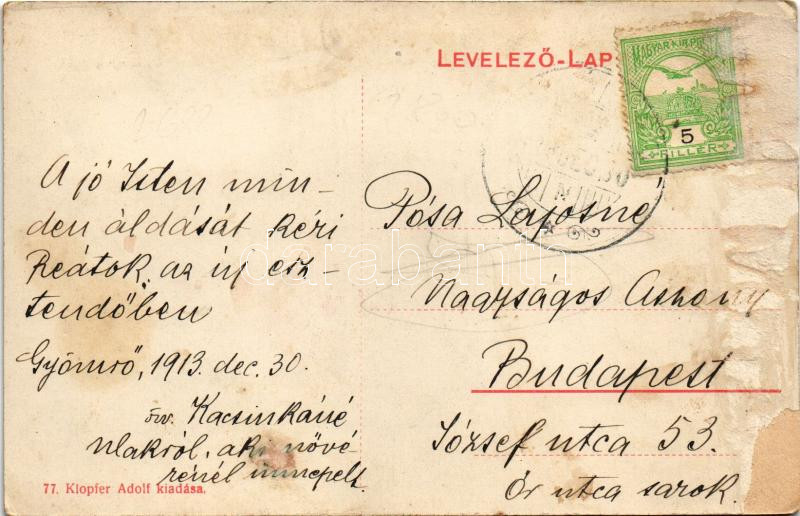 LEVELEZŐ-LAP
MAGYAR KIR. POSTA
5
FILLÉR
A jó Isten min-
den áldását kéri
Reátok az új esz-
tendőben
Gyömrő, 1913. dec. 30.
özv. Kacsinkáné
Mlakról, aki nővé-
rénél ünnepelt.
Pósa Lajosné
Nagyságos Asszony
Budapest
József utca 53.
Őr utca sarok.
77. Klopfer Adolf kiadása.
darabanth